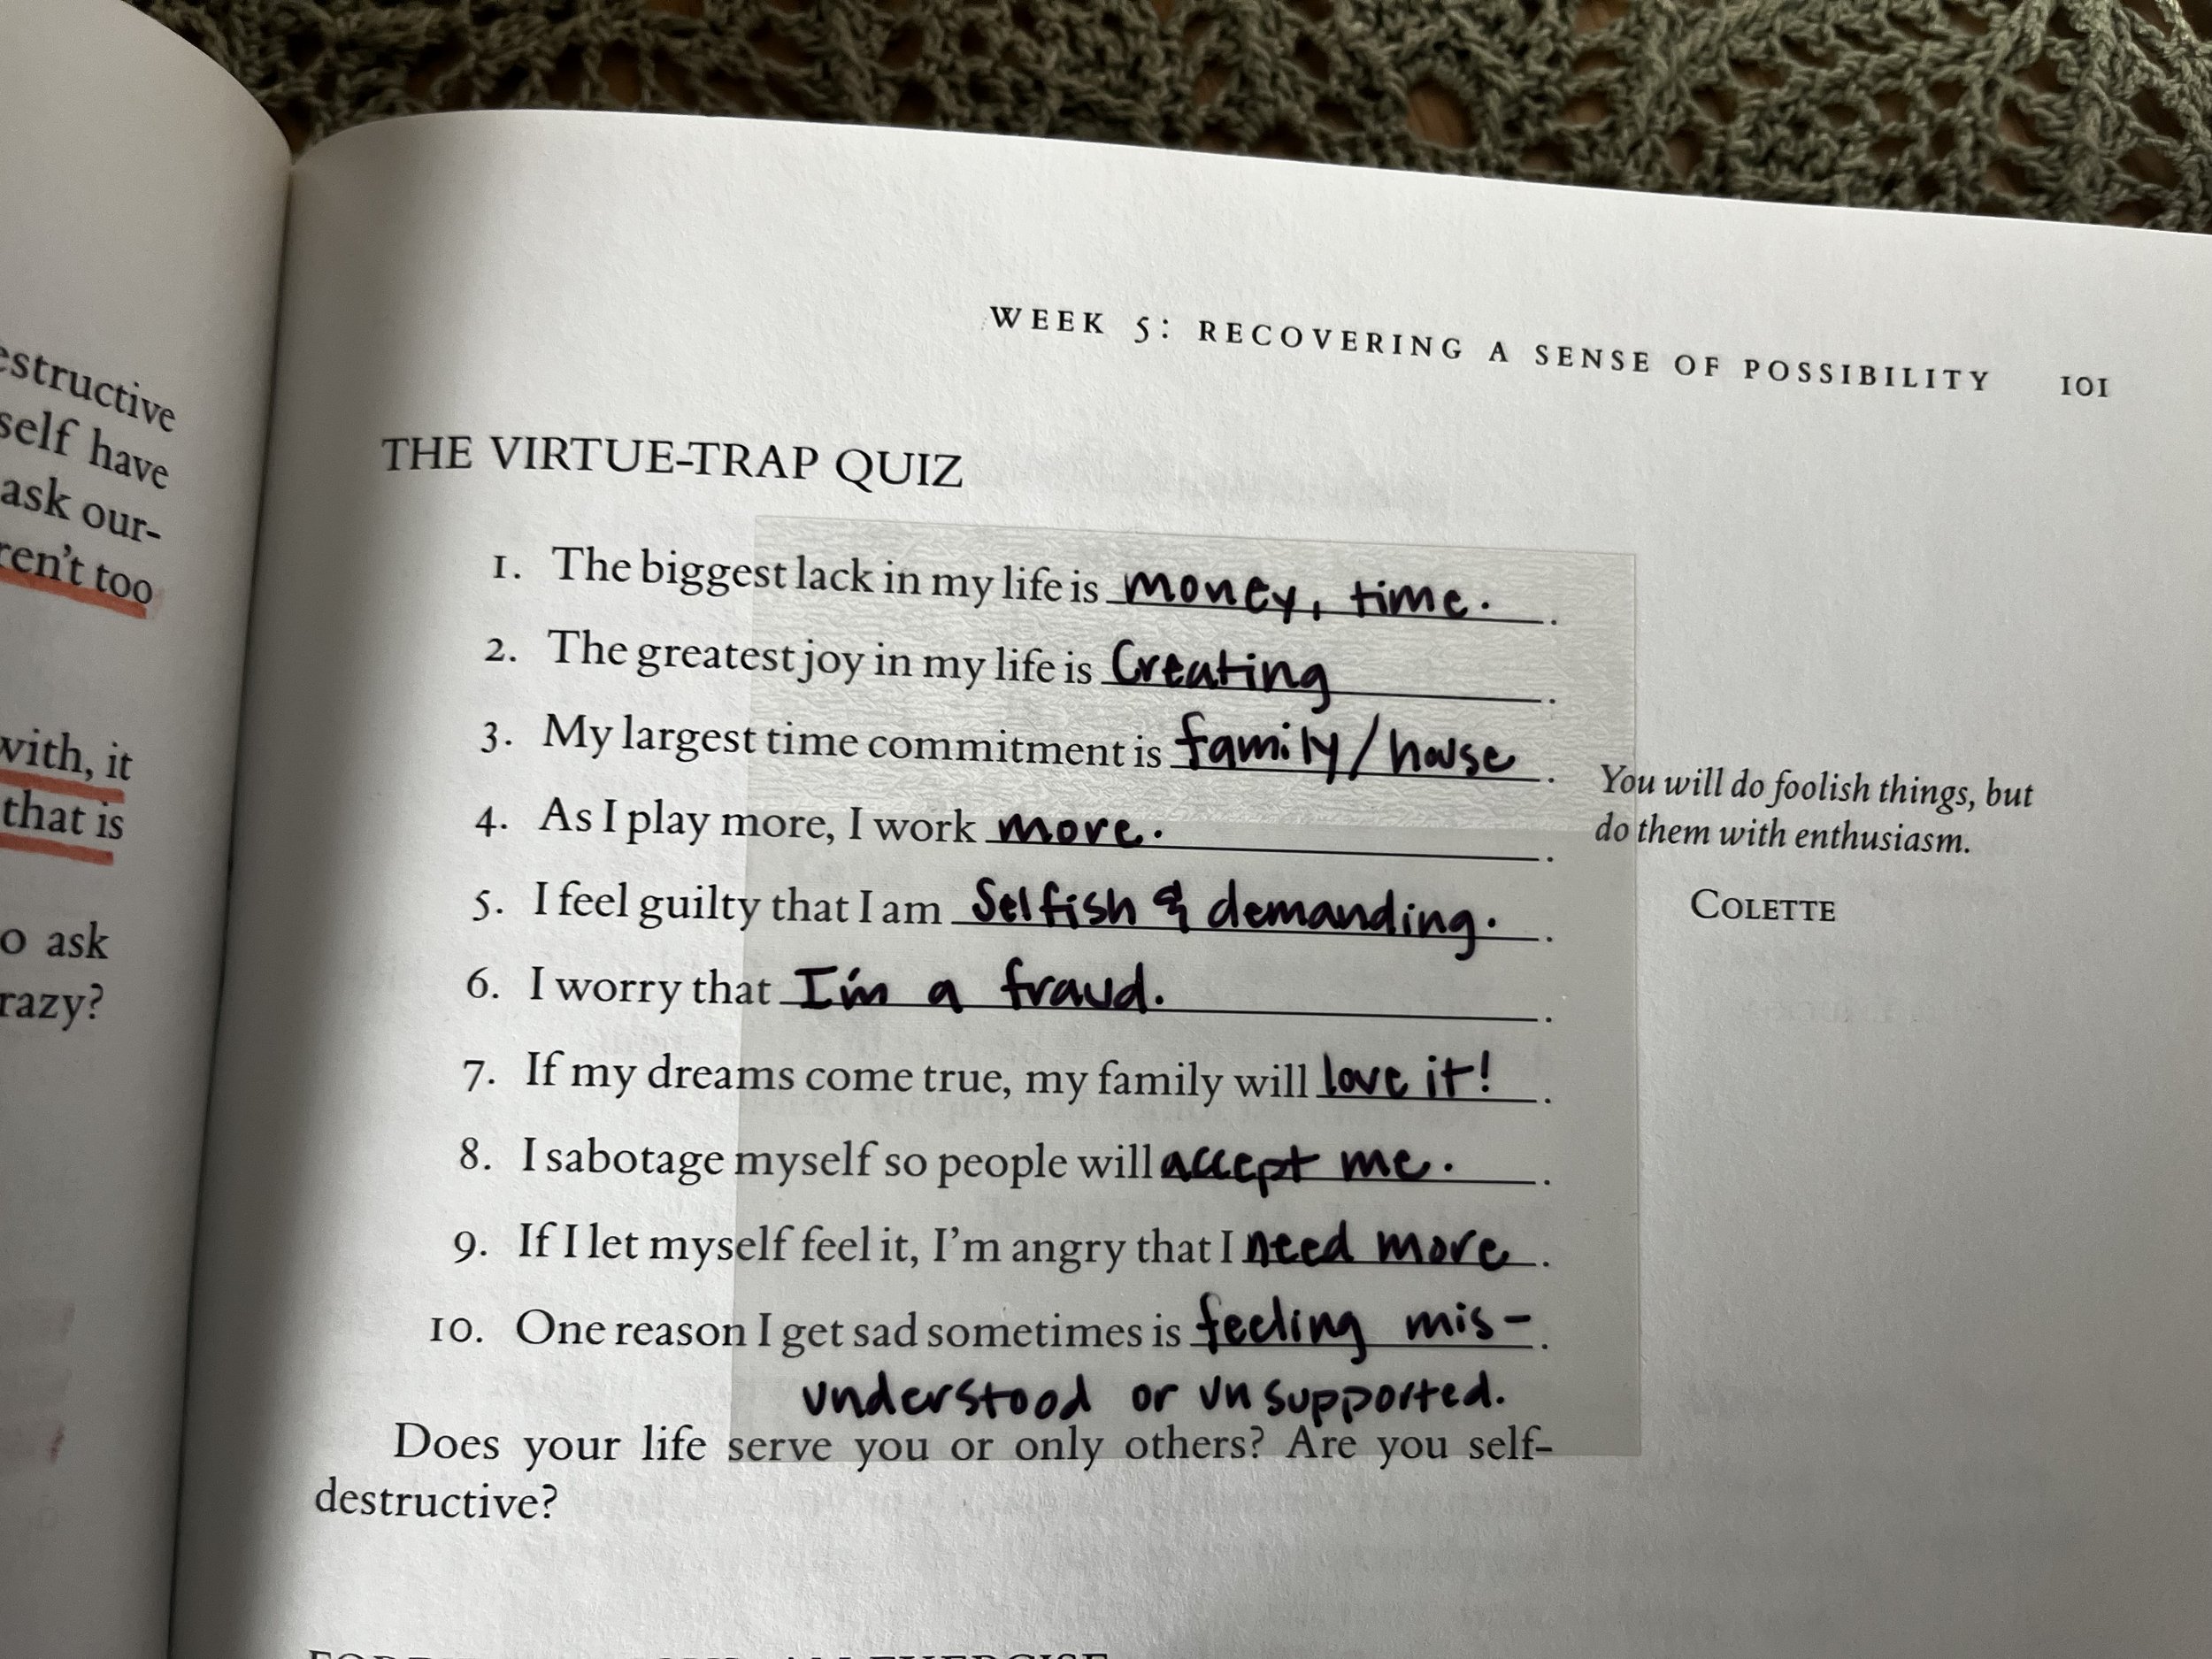 estructive
self have
ask our-
ren't too
with, it
that is
o ask
razy?
WEEK 5: RECOVERING A SENSE OF POSSIBILITY 101
THE VIRTUE-TRAP QUIZ
1. The biggest lack in my life is money, time. .
2. The greatest joy in my life is Creating .
3. My largest time commitment is family/house .
4. As I play more, I work more. .
5. I feel guilty that I am Selfish & demanding. .
6. I worry that I'm a fraud. .
7. If my dreams come true, my family will love it! .
8. I sabotage myself so people will accept me. .
9. If I let myself feel it, I'm angry that I need more .
10. One reason I get sad sometimes is feeling mis- .
understood or unsupported.
Does your life serve you or only others? Are you self-
destructive?
You will do foolish things, but
do them with enthusiasm.
COLETTE
EXERCISE